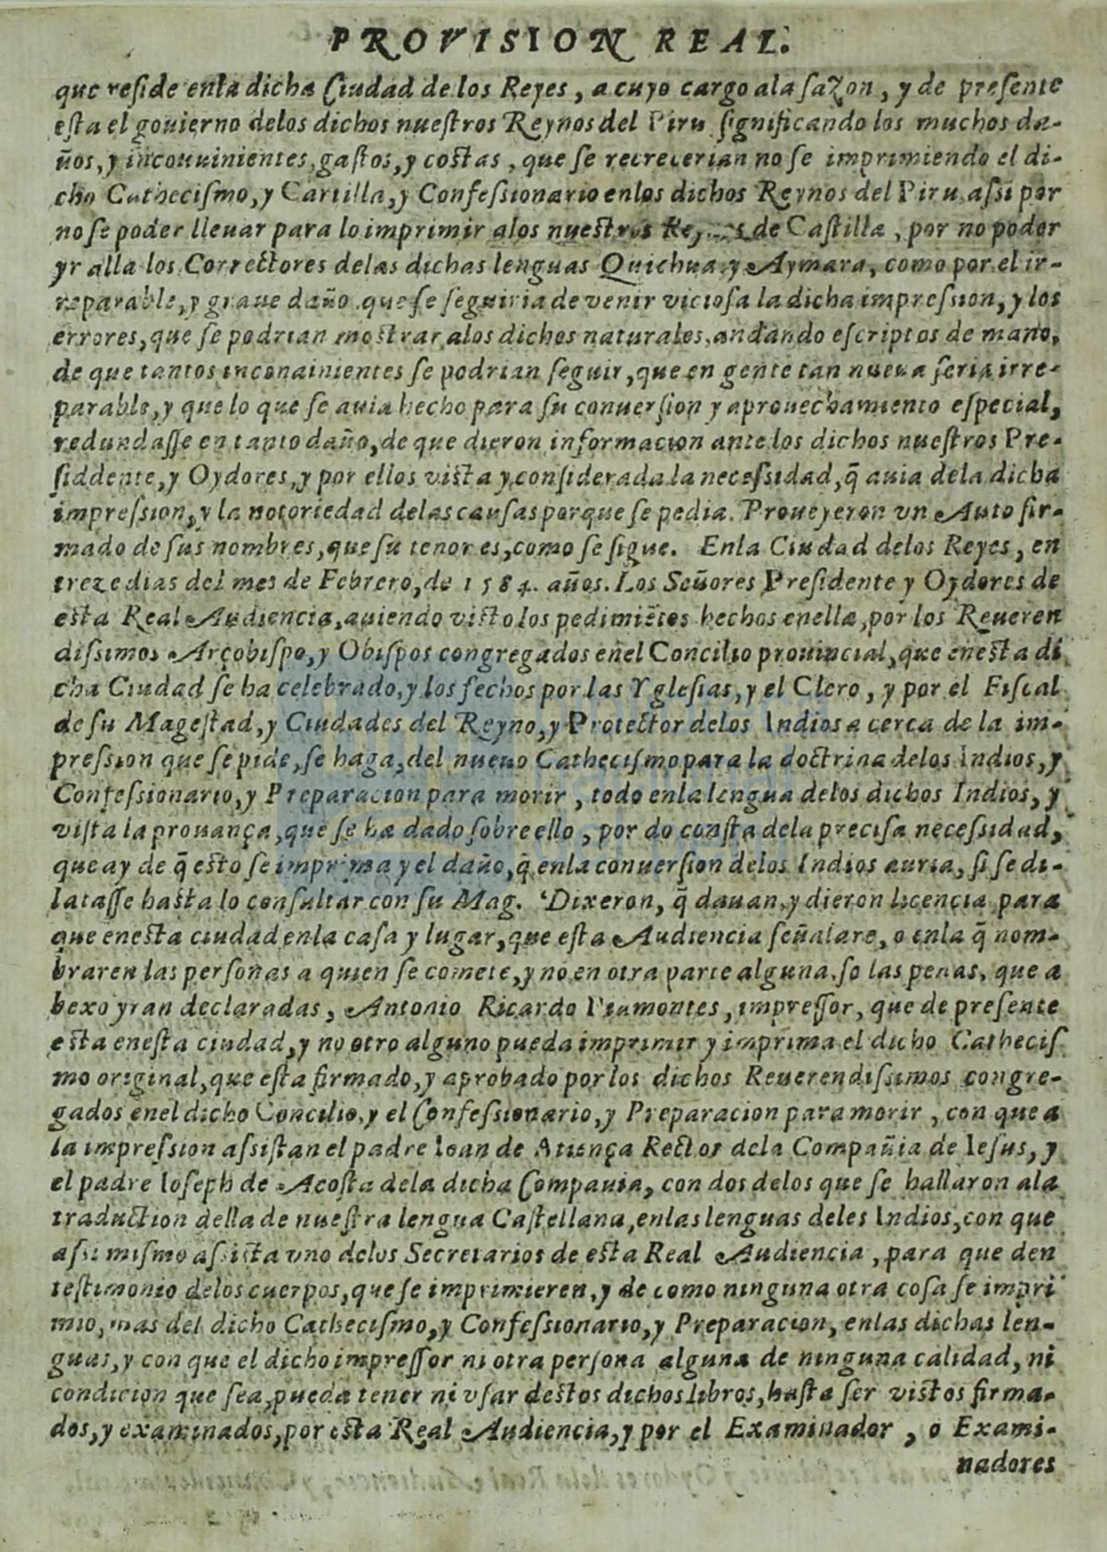 PROVISION REAL.
que reside enla dicha Ciudad de los Reyes, a cuyo cargo ala sazon, y de presente
esta el gouierno delos dichos nuestros Reynos del Piru significando los muchos da-
ños, y incouuinientes, gastos, y costas, que se recrecerian no se imprimiendo el di-
cho Cathecismo, y Cartilla, y Confessionario enlos dichos Reynos del Piru, assi por
no se poder lleuar para lo imprimir alos nuestros de Castilla, por no poder
yr alla los Correctores delas dichas lenguas Quichua, y Aymara, como por el ir-
reparable, y graue daño que se seguiria de venir viciosa la dicha impression, y los
errores, que se podrian mostrar alos dichos naturales, andando escriptos de mano,
de que tantos inconuinientes se podrian seguir, que en gente tan nueua seria irre-
parable, y que lo que se auia hecho para su conuersion y aprouechamiento especial,
redundasse en tanto daño, de que dieron informacion ante los dichos nuestros Pre-
siddente, y Oydores, y por ellos vista y considerada la necessidad, q̃ auia dela dicha
impression, y la notoriedad delas causas porque se pedia. Proueyeron vn Auto fir-
mado de sus nombres, que su tenor es, como se sigue. Enla Ciudad delos Reyes, en
treze dias del mes de Febrero, de 1584. años. Los Señores Presidente y Oydores de
esta Real Audiencia, auiendo visto los pedimiẽtos hechos enella, por los Reueren
dissimos Arçobispo, y Obispos congregados enel Concilio prouincial, que enesta di
cha Ciudad se ha celebrado, y los fechos por las Yglesias, y el Clero, y por el Fiscal
de su Magestad, y Ciudades del Reyno, y Protector delos Indios a cerca de la im-
pression que se pide, se haga, del nueuo Cathecismo para la doctrina delos Indios, y
Confessionario, y Preparacion para morir, todo enla lengua delos dichos Indios, y
vista la prouança, que se ha dado sobre ello, por do consta dela precisa necessidad,
que ay de q̃ esto se imprima y el daño, q̃ enla conuersion delos Indios auria, si se di-
latasse hasta lo consultar con su Mag. Dixeron, q̃ dauan, y dieron licencia para
que enesta ciudad, enla casa y lugar, que esta Audiencia señalare, o enla q̃ nom-
braren las personas a quien se comete, y no en otra parte alguna. so las penas, que a
bexo yran declaradas, Antonio Ricardo Piamontes, impressor, que de presente
esta enesta ciudad, y no otro alguno pueda imprimir y imprima el dicho Cathecis
mo original, que esta firmado, y aprobado por los dichos Reuerendissimos congre-
gados enel dicho Concilio, y el Confessionario, y Preparacion para morir, con que a
la impression assistan el padre Ioan de Atiença Rector dela Compañia de Iesus, y
el padre Ioseph de Acosta dela dicha Compauia, con dos delos que se hallaron ala
traduction della de nuestra lengua Castellana, enlas lenguas delos Indios, con que
assi mismo assista vno delos Secretarios de esta Real Audiencia, para que den
testimonio delos cuerpos, que se imprimieren, y de como ninguna otra cosa se impri
mio, mas del dicho Cathecismo, y Confessionario, y Preparacion, enlas dichas len-
guas, y con que el dicho impressor ni otra persona alguna de ninguna calidad, ni
condicion que sea, pueda tener ni vsar destos dichos libros, hasta ser vistos firma-
dos, y examinados, por esta Real Audiencia, y por el Examinador, o Exami-
nadores